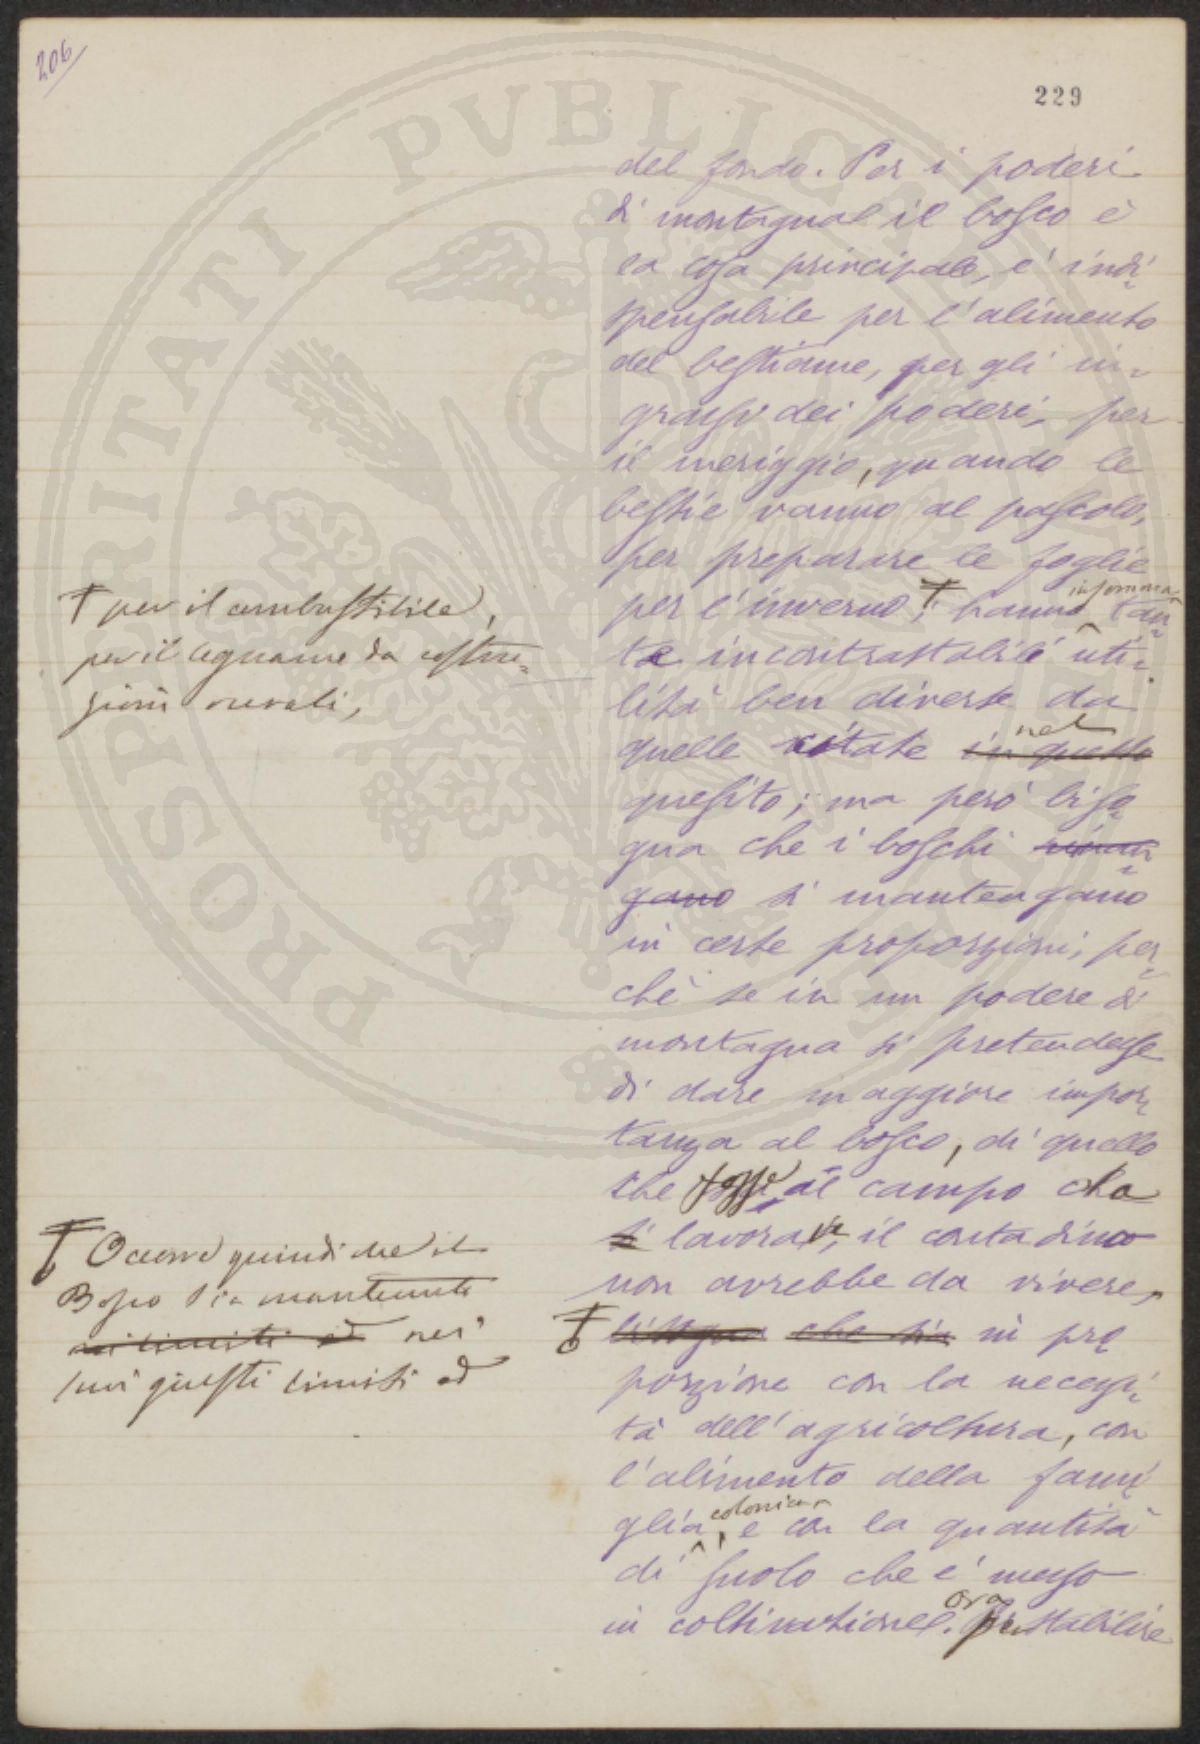 206
229
del fondo. Per i poderi
di montagna il bosco è
la cosa principale, e' indi-
spensabile per l'alimento
del bestiame, per gli in=
grassi dei poderi, per
il meriggio, quando le
bestie vanno al pascolo,
per preparare le foglie
per l'inverno; hanno insomma tan=
te incontrastabili uti=
lità ben diverse da
quelle citate in questo nel
quesito; ma però biso=
gna che i boschi riman=
gano si mantengano
in certe proporzioni, per=
chè se in un podere di
montagna si pretendesse
di dare maggiore impor=
tanza al bosco, di quello
che fosse al campo che
si lavora, il contadino
non avrebbe da vivere,
bisogna che sia in pro=
porzione con la necessi=
tà dell'agricoltura, con
l'alimento della fami=
glia colonica, e con la quantità
di suolo che e' messo
in coltivazione. Ora per stabilire
per il combustibile,
per il legname da costru=
zioni rurali,
Occorre quindi che il
Bosco sia mantenuto
nei limiti ed nei
suoi giusti limiti ed
PROSPERITATI PVBLICAE